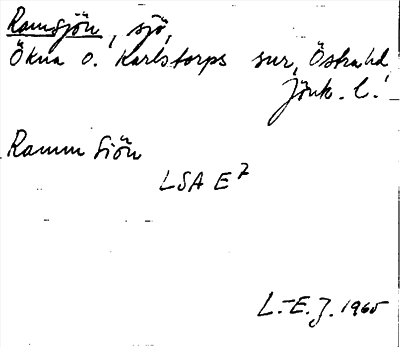 Ramsjön, sjö,
Ökna o. Karlstorps snr, Östra hd
Jönk. l.
Ramm Siön
LSA E 7
L.-E. J. 1965